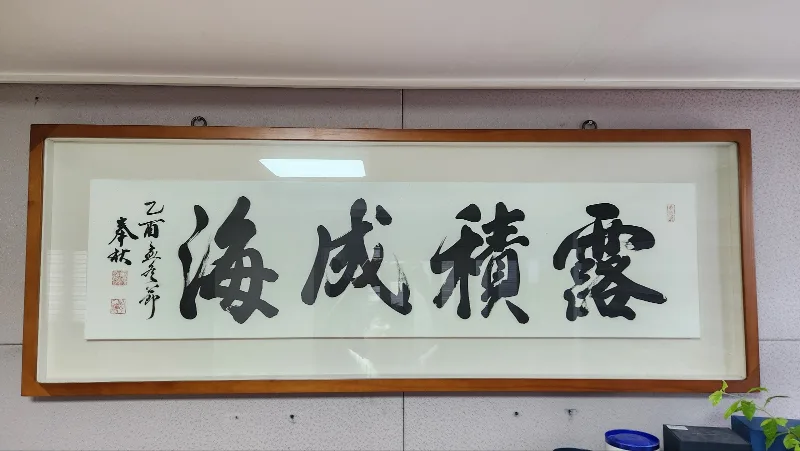 露積成海
乙酉孟冬節
奉秋